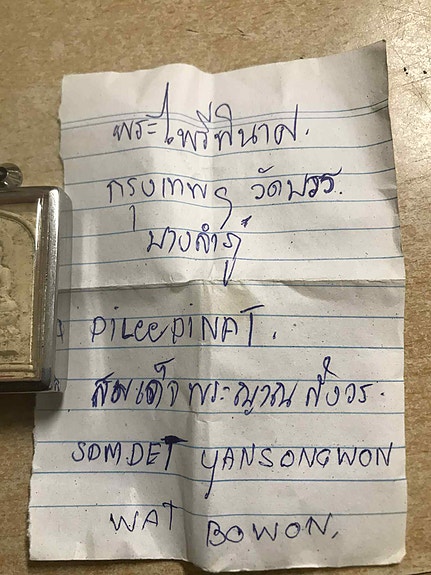 พระไพรีพินาศ.
กรุงเทพฯ วัดบวร.
บางลำภู
PiLeePiNAT.
สมเด็จพระญาณสังวร.
SOMDET YANSONGWON
WAT BOWON.